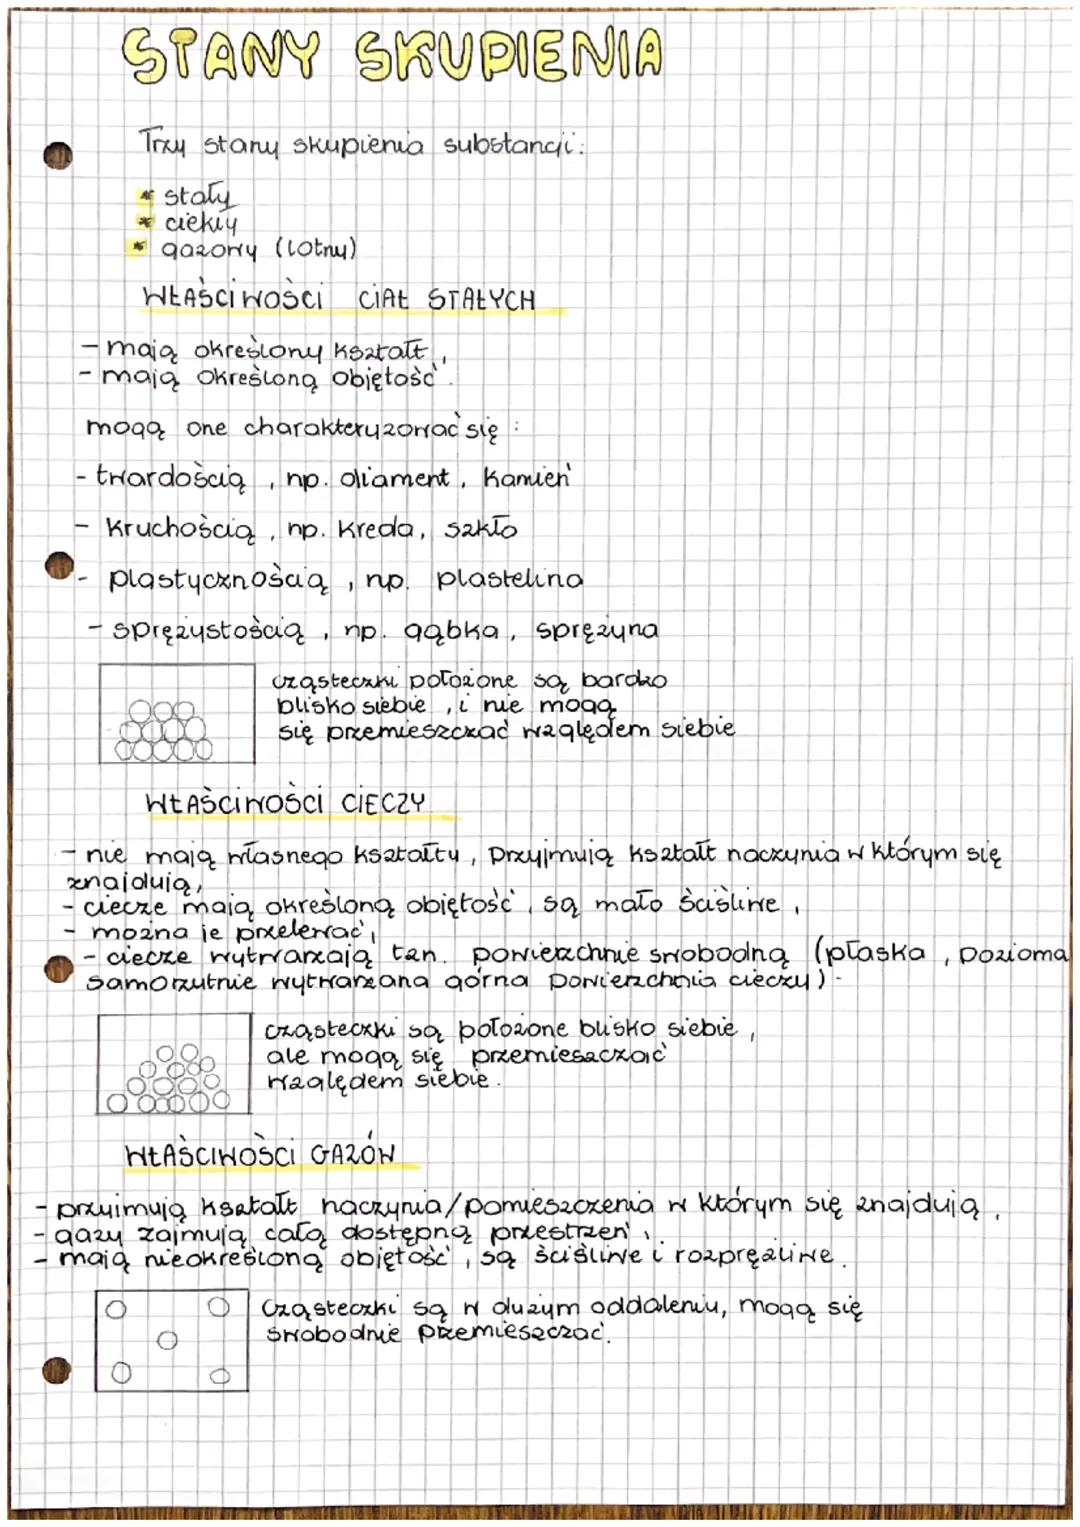 STANY SKUPIENIA
Trzy stany skupienia substancji:
* stały
* ciekły
* gazowy (lotny)
WŁAŚCIWOŚCI CIAŁ STAŁYCH
- mają określony kształt,
- mają określoną objętość.
mogą one charakteryzować się :
- twardością , np. diament , kamień
- kruchością , np. kreda, szkło
- plastycznością , np. plastelina
- sprężystością , np. gąbka , sprężyna
cząsteczki położone są bardzo
blisko siebie , i nie mogą
się przemieszczać względem siebie
WŁAŚCIWOŚCI CIECZY
- nie mają własnego kształtu , przyjmują kształt naczynia w którym się
znajdują,
- ciecze mają określoną objętość , są mało ściśliwe ,
- można je przelewać,
- ciecze wytwarzają tzn. powierzchnie swobodną (płaska , pozioma
samorzutnie wytwarzana górna powierzchnia cieczy) -
cząsteczki są położone blisko siebie ,
ale mogą się przemieszczać
względem siebie .
WŁAŚCIWOŚCI GAZÓW
- przyjmują kształt naczynia/pomieszczenia w którym się znajdują ,
- gazy zajmują całą dostępną przestrzeń ,
- mają nieokreśloną objętość , są ściśliwe i rozprężliwe .
Cząsteczki są w dużym oddaleniu, mogą się
swobodnie przemieszczać.